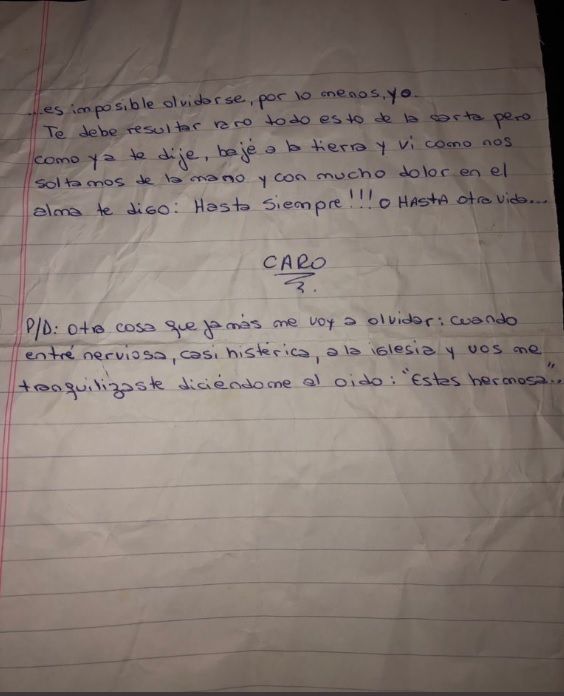 ...es imposible olvidarse, por lo menos, yo.
Te debe resultar raro todo esto de la carta pero
como ya te dije, bajé a la tierra y vi como nos
soltamos de la mano y con mucho dolor en el
alma te digo: Hasta siempre!!! o HAStA otra vida...
CARO
P/D: otra cosa que jamás me voy a olvidar: cuando
entré nerviosa, casi histérica, a la iglesia y vos me
tranquilizaste diciéndome al oido: "Estas hermosa"...